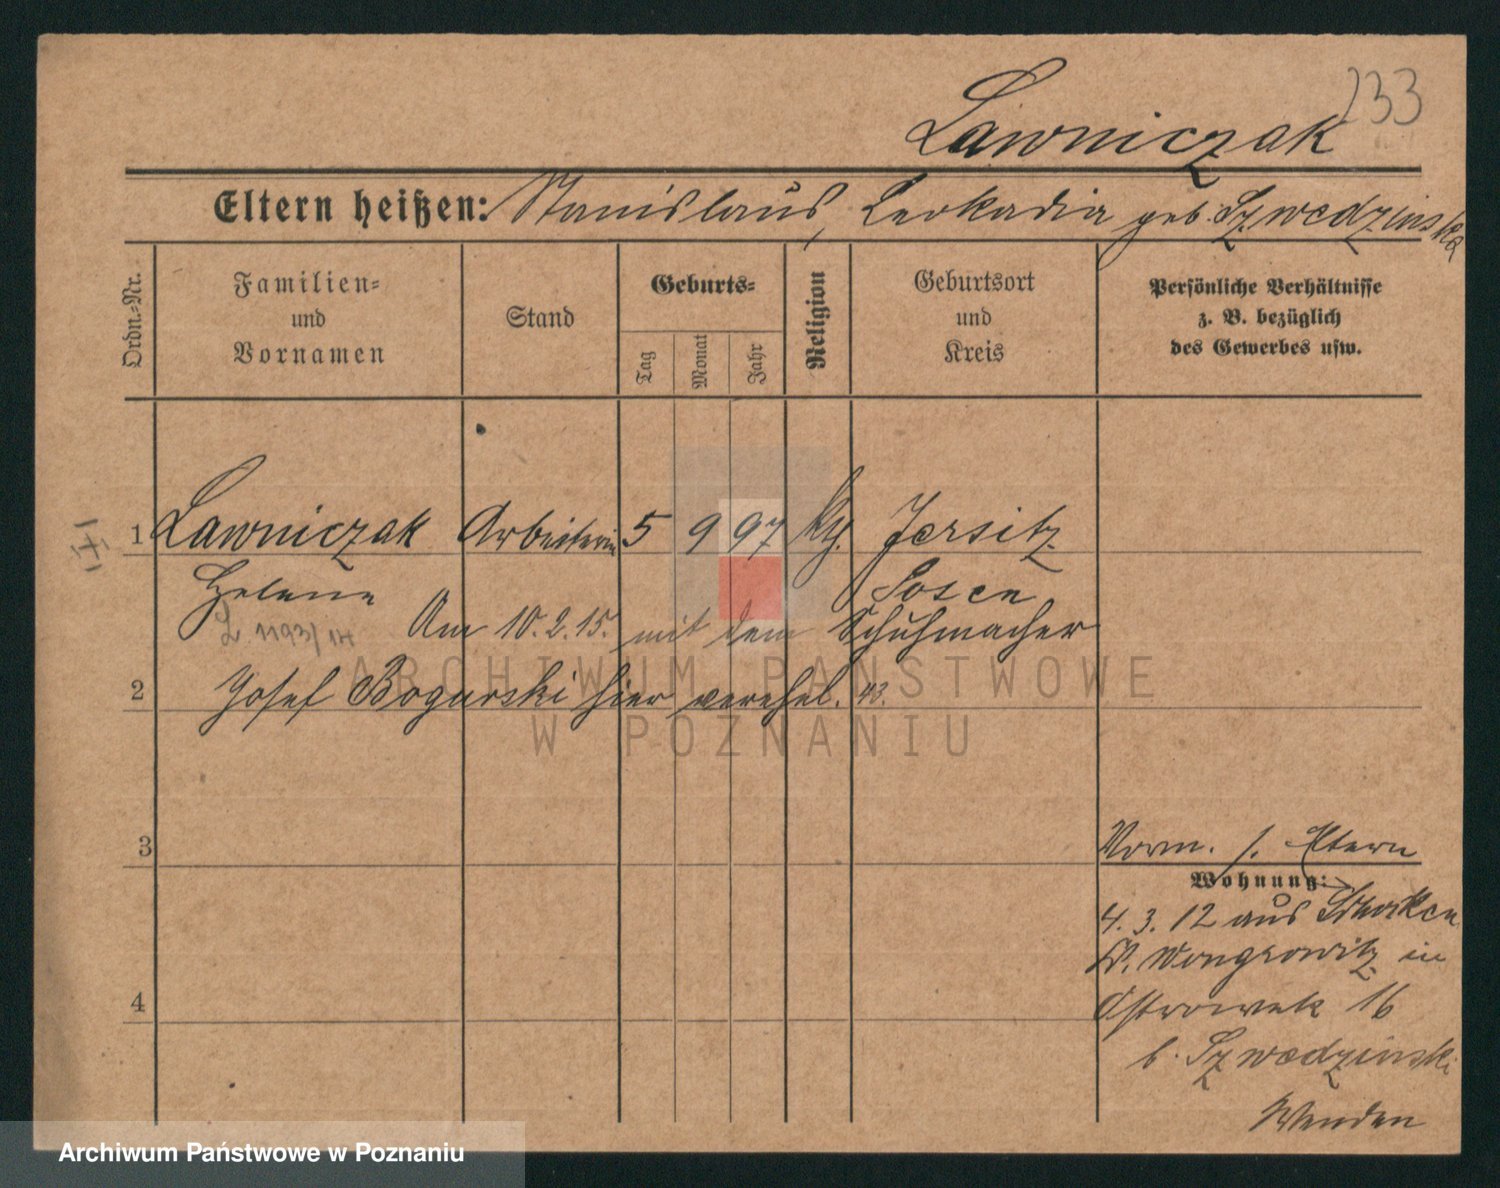 233
Lawniczak
Eltern heißen: Stanislaus, Leokadia geb. Szwedzinska
Ordn.-Nr.
Familien-
und
Vornamen
Stand
Geburts-
Tag
Monat
Jahr
Religion
Geburtsort
und
Kreis
Persönliche Verhältnisse
z. B. bezüglich
des Gewerbes usw.
1 Lawniczak Arbeiterin 5 9 97 kth. Jersitz
Helene Posen
L. 1193/14 Am 10.2.15. mit dem Schuhmacher
2 Josef Bogurski hier verehel. 43.
3
Vorm. s. Eltern
Wohnung:
4. 3. 12 aus
Wongrowitz in
4
Ostrowek 16
b. Szwedzinski
Wenden
ARCHIWUM PAŃSTWOWE
W POZNANIU
Archiwum Państwowe w Poznaniu